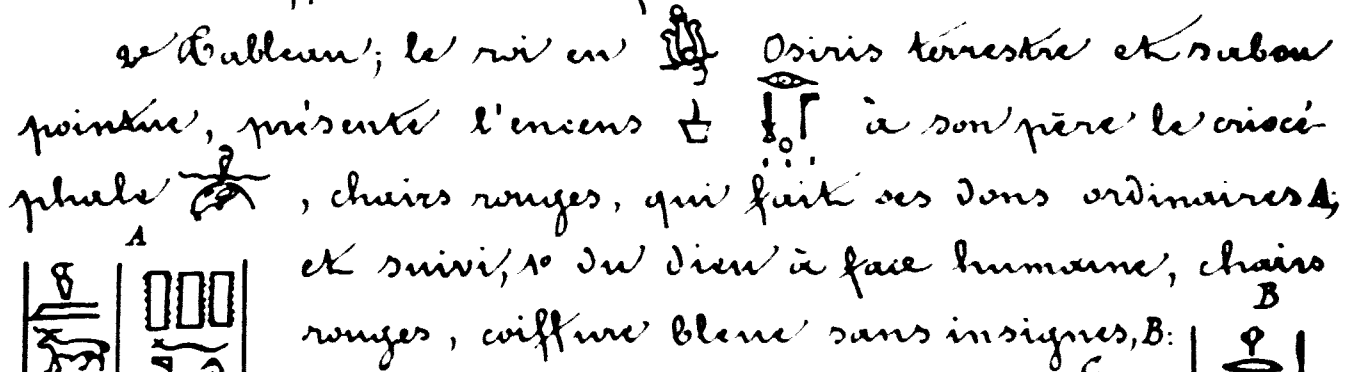 2e Tableau; le roi en Osiris terrestre et sabou
pointue, présente l'encens à son père le criocé-
phale , chairs rouges, qui fait ses dons ordinaires A;
A
et suivi, 1º du dieu à face humaine, chairs
B
rouges, coiffure bleue sans insignes, B: